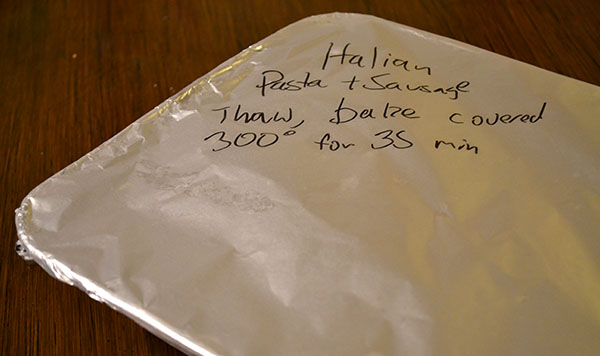 Italian
Pasta + Sausage
Thaw, bake covered
300° for 35 min